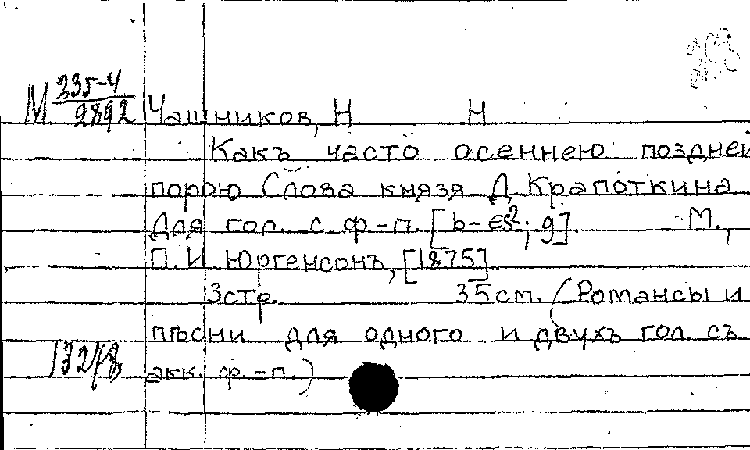 М 335-4
2892
Чашников, Н Н
Какъ часто осеннею поздней
порою Слова князя Д. Крапоткина
Для гол. с ф-п. [b-es²; g]. М.,
П. И. Юргенсонъ, [1875]
3стр. 35см. (Романсы и
пѣсни для одного и двухъ гол. съ
акк. ф-п.)